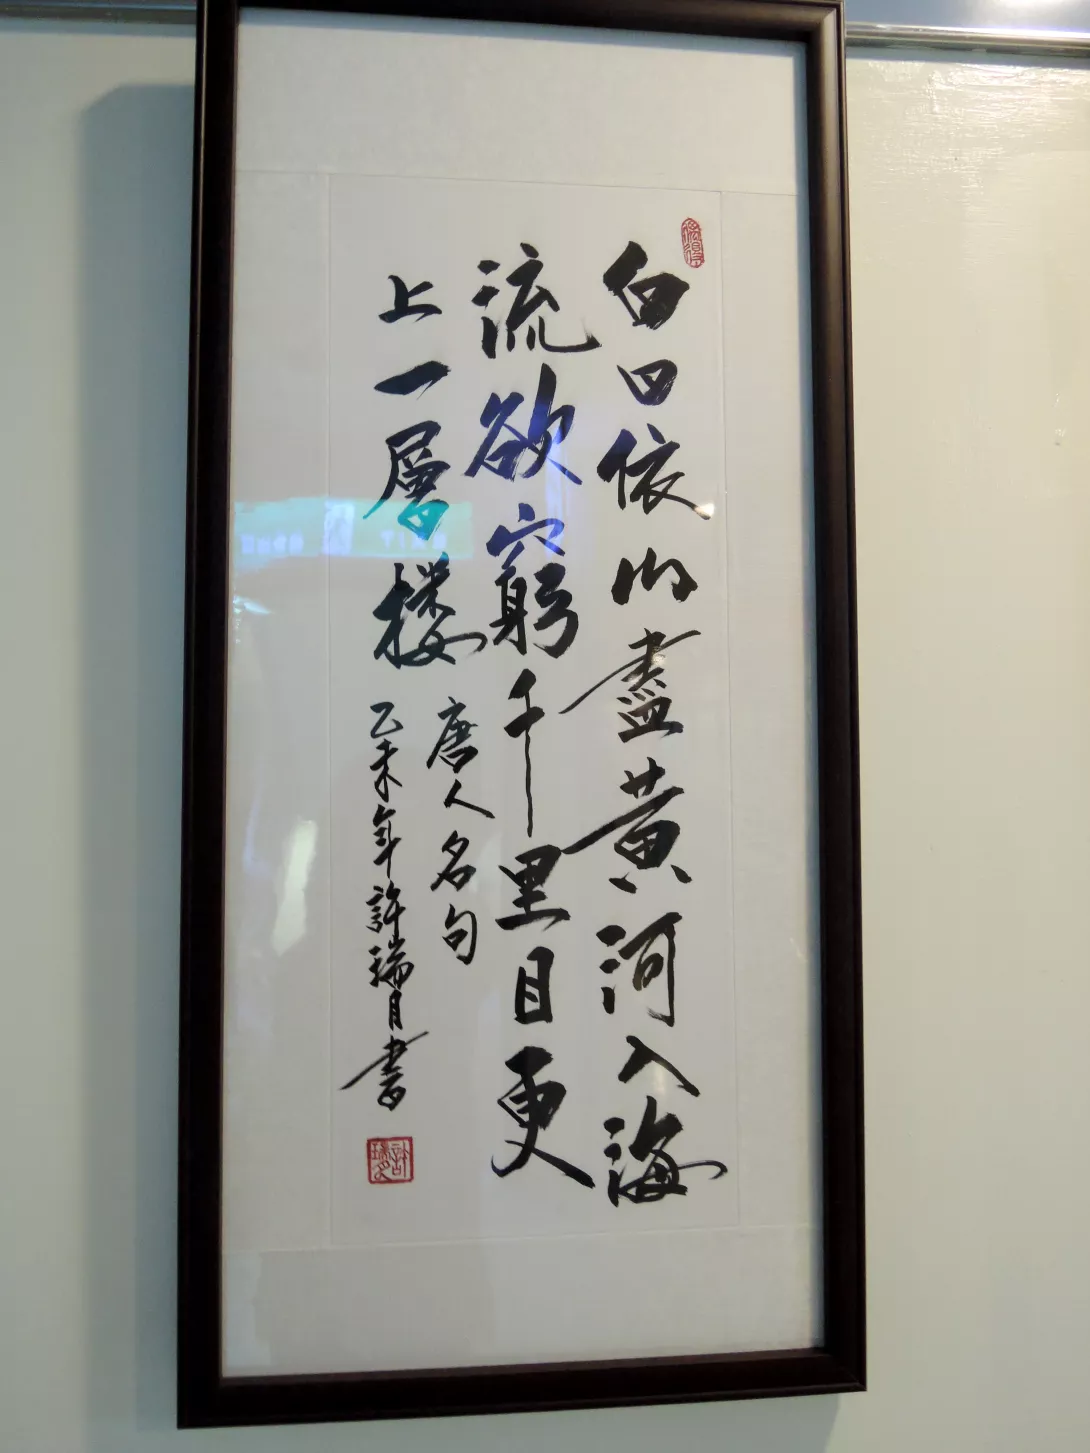 白日依山盡黃河入海
流欲窮千里目更
上一層楼
唐人名句
乙未年許瑞月書
許瑞月